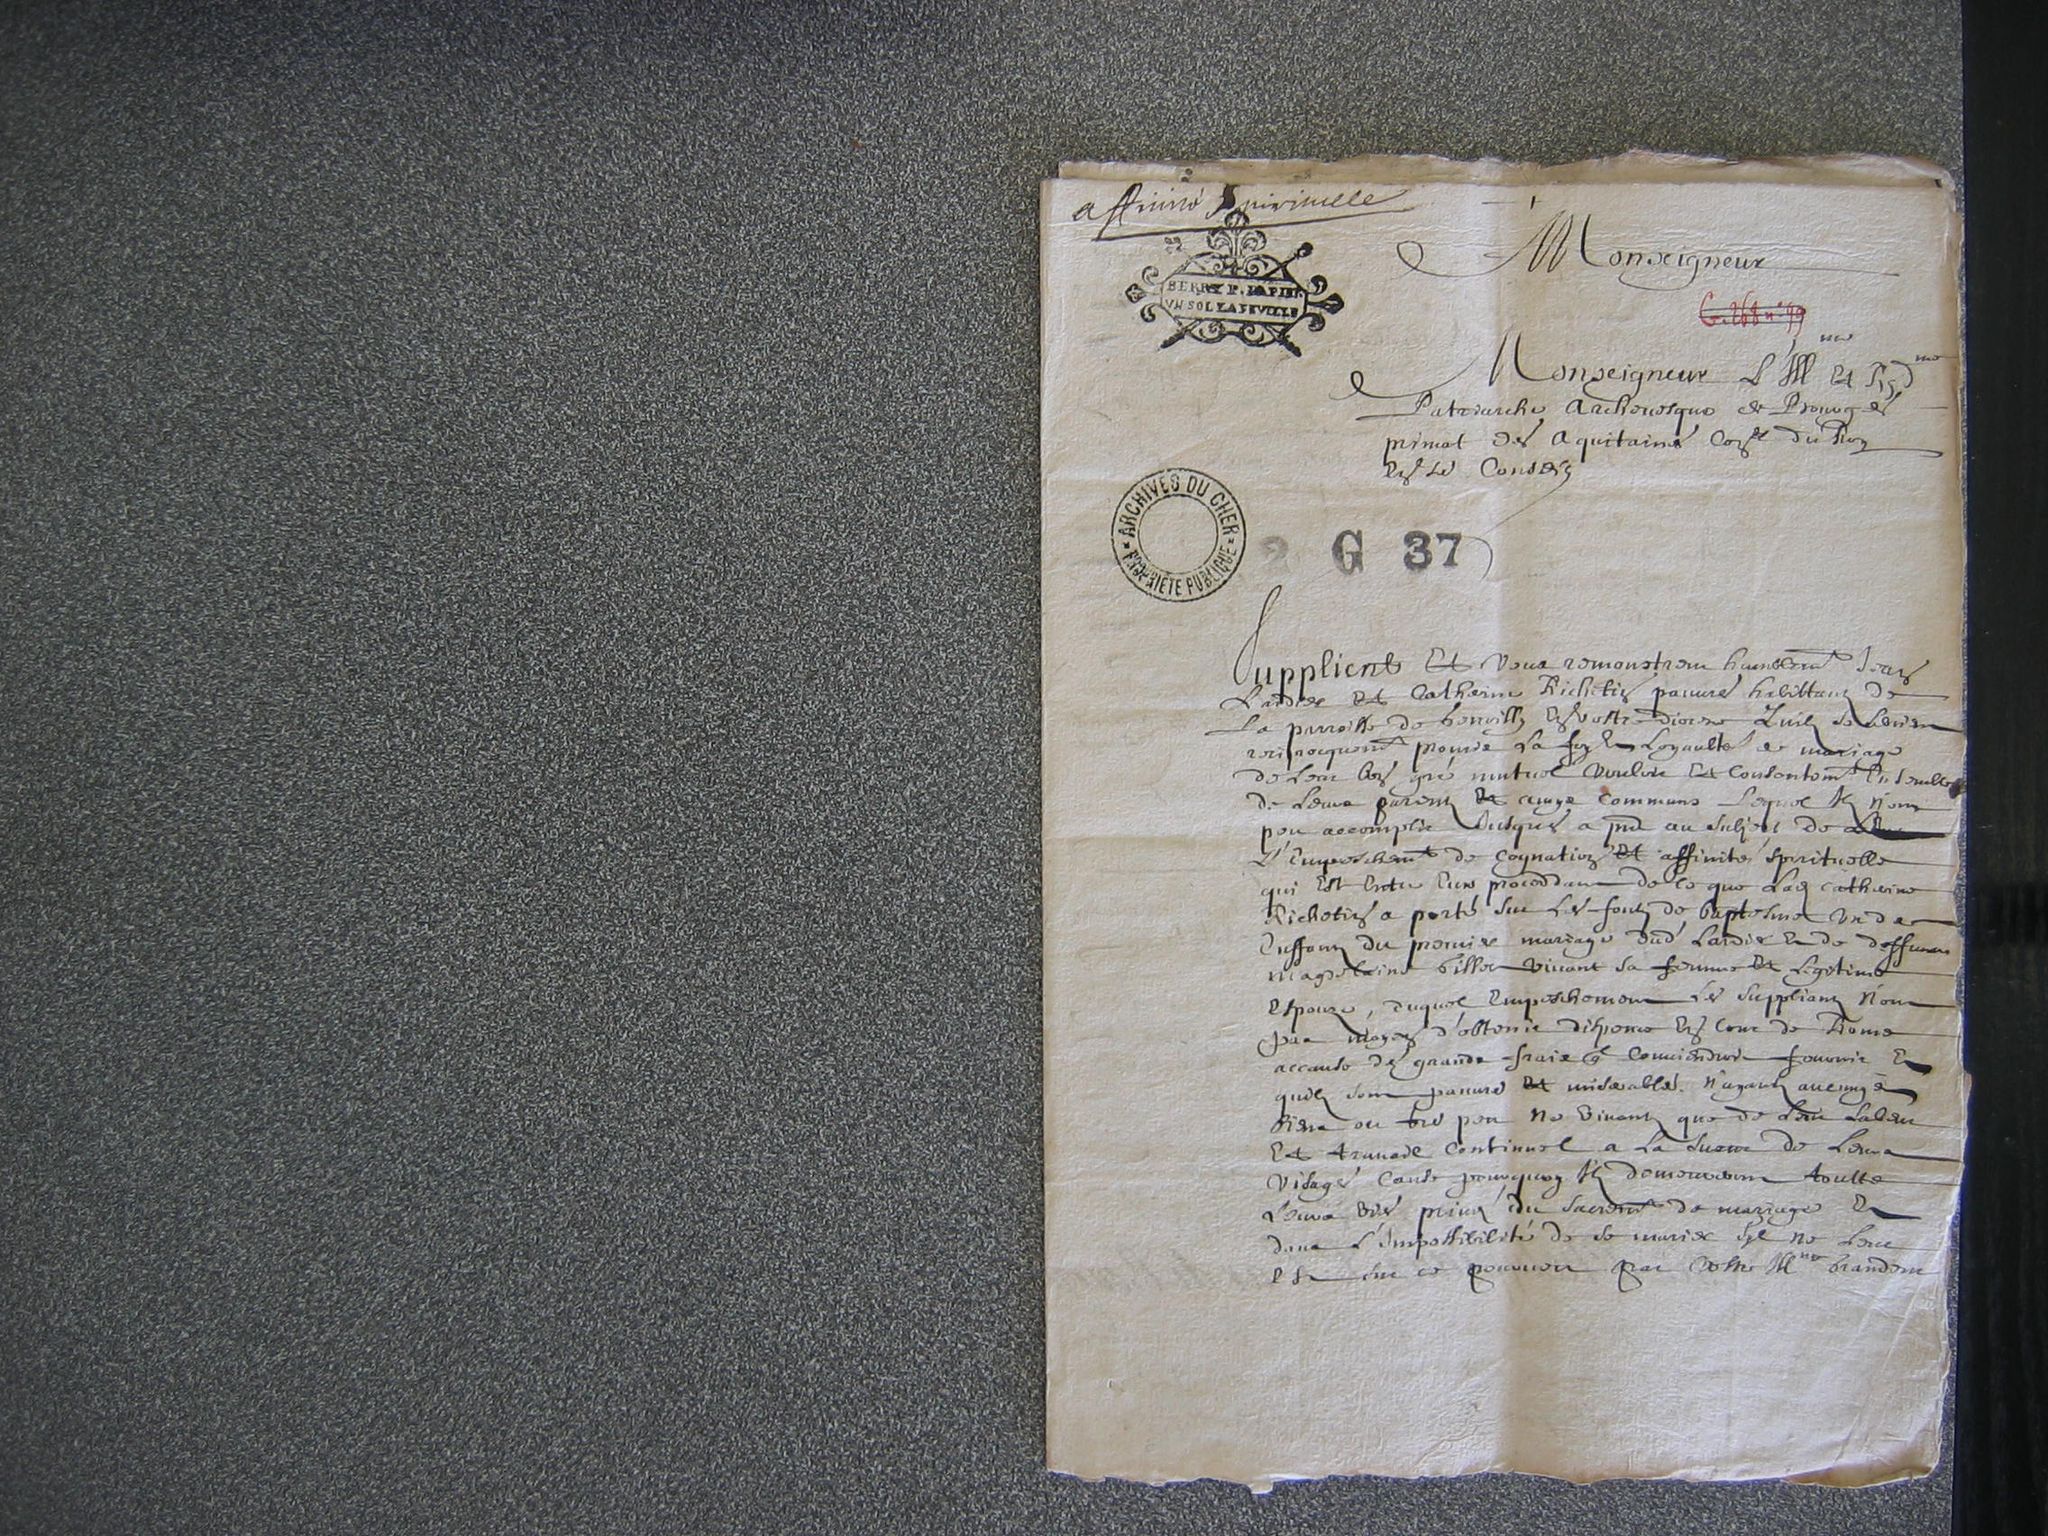 affinité spirituelle
Monseigneur
BERRY P. PAPIER
VN SOL LA FEVILLE
G. 268 n° 99
Monseigneur L'Ill me Et R me
Patriarche Archevesque de Bourges
primat des Aquitaines Con du Roy
En ses Conseils
ARCHIVES DU CHER
PROPRIÉTÉ PUBLIQUE
2 G 37
Supplient Et vous remonstrent humblemt Jean
Lardier Et Catherine Richetin pauvres habittans de
La parroisse de En vostre diocese quilz se seroient
reciprocquemt promis La foy Et Loyaulté de mariage
de Leur bon gré mutuel vouloir Et consentemt Ensemble
de Leurs parens Et amys communs Lequel Ilz nont
peu accomplir Jusques a pnt au subject de
L'Empeschemt de cognation Et affinité spirituelle
qui Est Entre Eux proceddant de ce que Lad Catherine
Richetin a porté sur Les fons de baptesme un des
Enffans du premier mariage dud Lardier Et de deffuncte
magdelaine billot vivant sa femme Et Legitime
Espouze, duquel Empeschement Les suppliants nont
pas moyen d'obtenir dispence En Cour de Rome
accause des grands frais q conviendroit fournir Et
quilz sont pauvres Et miserables. N'ayant aucungs
biens ou tres peu ne vivants que de Leur Labeur
Et travail continuel a La sueur de Leurs
visages Cause pourquoy Ilz demeureront toutte
Leurs vies privez du sacremt de mariage Et
dans L'impossibilité de se marier syl ne Leur
Est sur ce pourveu par Vostre Ill me Grandeur